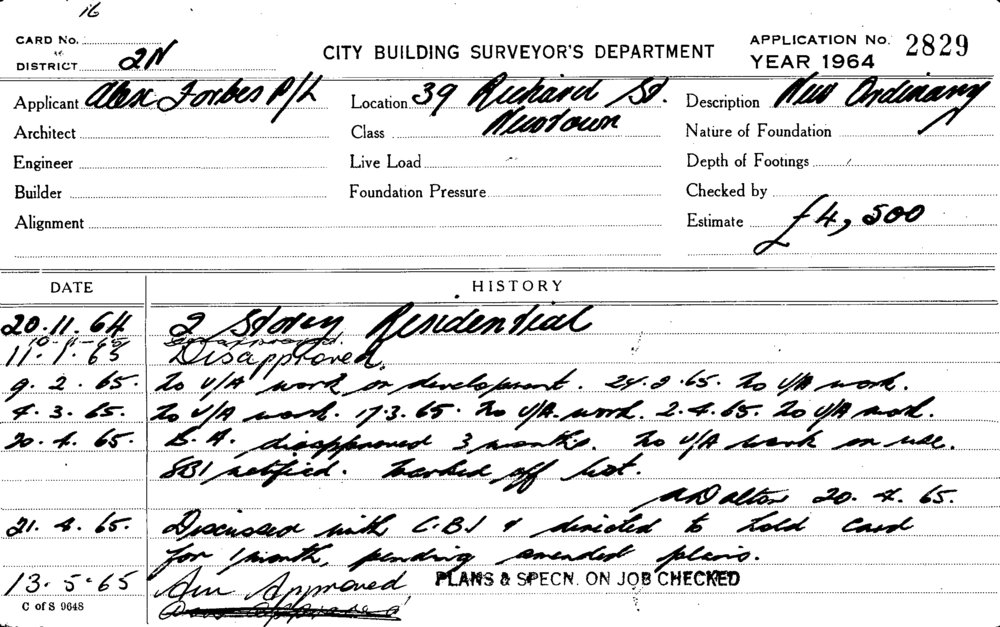 16
CARD No.
DISTRICT 2N
CITY BUILDING SURVEYOR'S DEPARTMENT
APPLICATION No. 2829
YEAR 1964
Applicant Alex Forbes P/L
Location 39 Richard St.
Newtown
Description New Ordinary
Architect
Class
Nature of Foundation
Engineer
Live Load
Depth of Footings
Builder
Foundation Pressure
Checked by
Alignment
Estimate £4,500
DATE HISTORY
20.11.64 2 Storey Residential
11.1.65 Disapproved.
9.2.65. No U/A work or development. 24.2.65. No U/A work.
4.3.65. No U/A work. 17.3.65. No U/A. work. 2.4.65. No U/A work.
20.4.65. B.A. disapproved 3 months. No U/A work or use.
SBI notified. Marked off list.
A Dalton 20.4.65.
21.4.65. Discussed with C.B.I & directed to hold card
for 1 month, pending amended plans.
13.5.65 Approved PLANS & SPECN. ON JOB CHECKED
C of S 9648